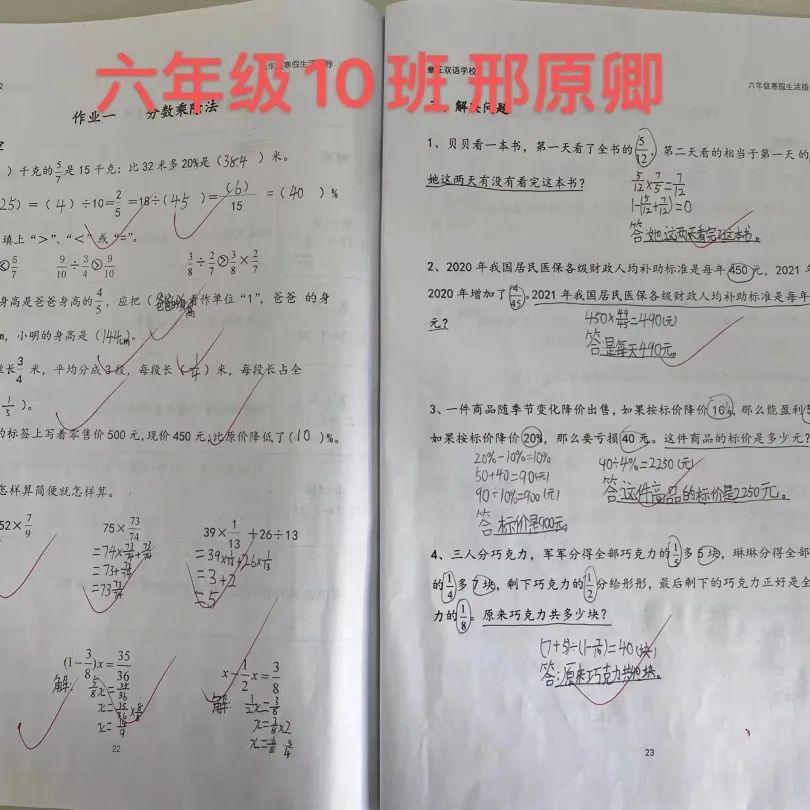 六年级10班邢原卿
六年级寒假生活指导
作业一 分数乘除法
）千克的5/7是15千克；比32米多20%是（38.4）米。
25）=（4）÷10=2/5=18÷（45）=（6）/15=（40）%
填上“>”、“<”或“=”。
5/7 9/10÷3/4>9/10 3/8÷2/7>3/8×2/7
身高是爸爸身高的4/5，应把（爸爸的身高）看作单位“1”，爸爸的身
m，小明的身高是（144cm）。
长3/4米，平均分成3段，每段长（1/4）米，每段长占全
1/3）。
的标签上写着零售价500元，现价450元，比原价降低了（10）%。
怎样算简便就怎样算。
52×7/9 75×73/74 39×1/13+26÷13
=74×73/74+73/74 =39×1/13+26×1/13
=73+73/74 =3+2
=73 73/74 =5
(1-3/8)x=35/36 x-1/2x=3/8
解：5/8x=35/36 解：1/2x=3/8
x=35/36×8/5 x=3/8×2
x=14/9 x=6/8 3/4
22
章丘双语学校
六年级寒假生活指
解决问题
1、贝贝看一本书，第一天看了全书的5/12，第二天看的相当于第一天的
她这两天有没有看完这本书？
5/12×7/5=7/12
1-(5/12+7/12)=0
答：她这两天看完了这本书。
2、2020年我国居民医保各级财政人均补助标准是每年450元，2021年
2020年增加了14/45。2021年我国居民医保各级财政人均补助标准是每年
元？
450×49/45=490(元)
答：是每天490元。
3、一件商品随季节变化降价出售，如果按标价降价10%，那么能盈利5
如果按标价降价20%，那么要亏损40元。这件商品的标价是多少元？
20%-10%=10% 90÷4%=2250(元)
50+40=90(元)
90÷10%=900(元) 答：这件商品的标价是2250元。
答：标价是900元。
4、三人分巧克力，军军分得全部巧克力的1/5多5块，琳琳分得全部
的1/4多7块，剩下巧克力的1/2分给彤彤，最后剩下的巧克力正好是全
力的1/8。原来巧克力共多少块？
(7+5)÷(1-7/10)=40(块)
答：原来巧克力共40块。
23